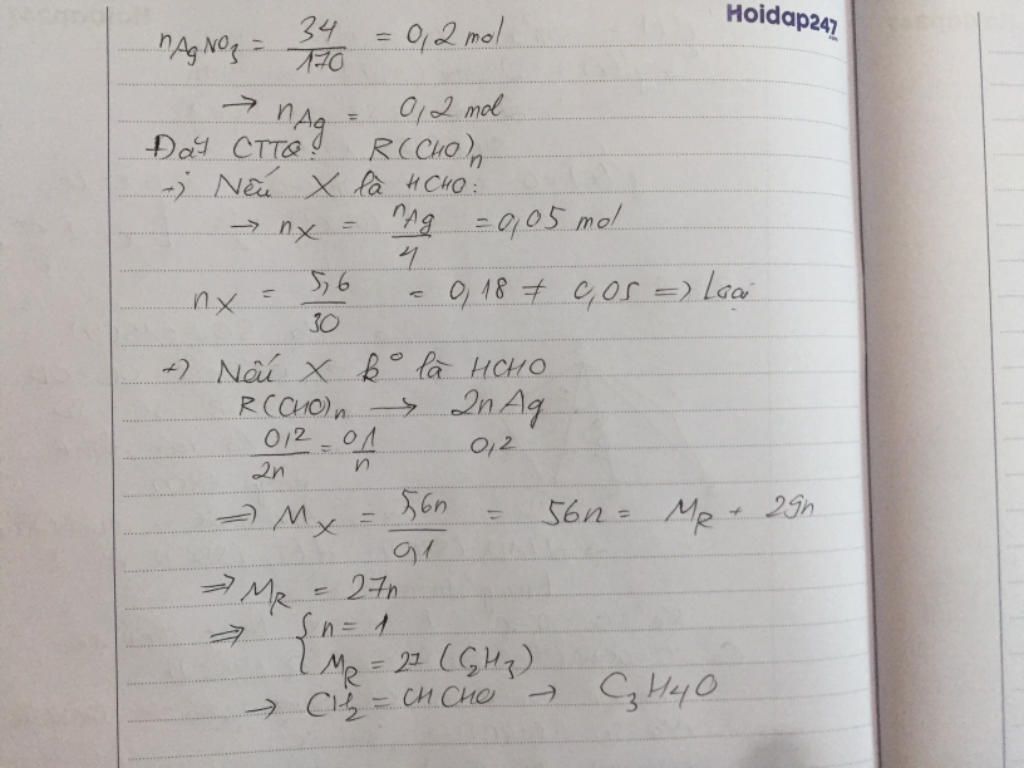 Hoidap247
.com
nAgNO3 = 34/170 = 0,2 mol
→ nAg = 0,2 mol
Đặt CTTQ: R(CHO)n
+) Nếu X là HCHO:
→ nX = nAg/4 = 0,05 mol
nX = 5,6/30 = 0,18 ≠ 0,05 => Loại
+) Nếu X k° là HCHO
R(CHO)n → 2nAg
0,2/2n = 0,1/n 0,2
=> MX = 5,6n/0,1 = 56n = MR + 29n
=> MR = 27n
=> { n = 1
MR = 27 (C2H3)
→ CH2 = CHCHO → C3H4O